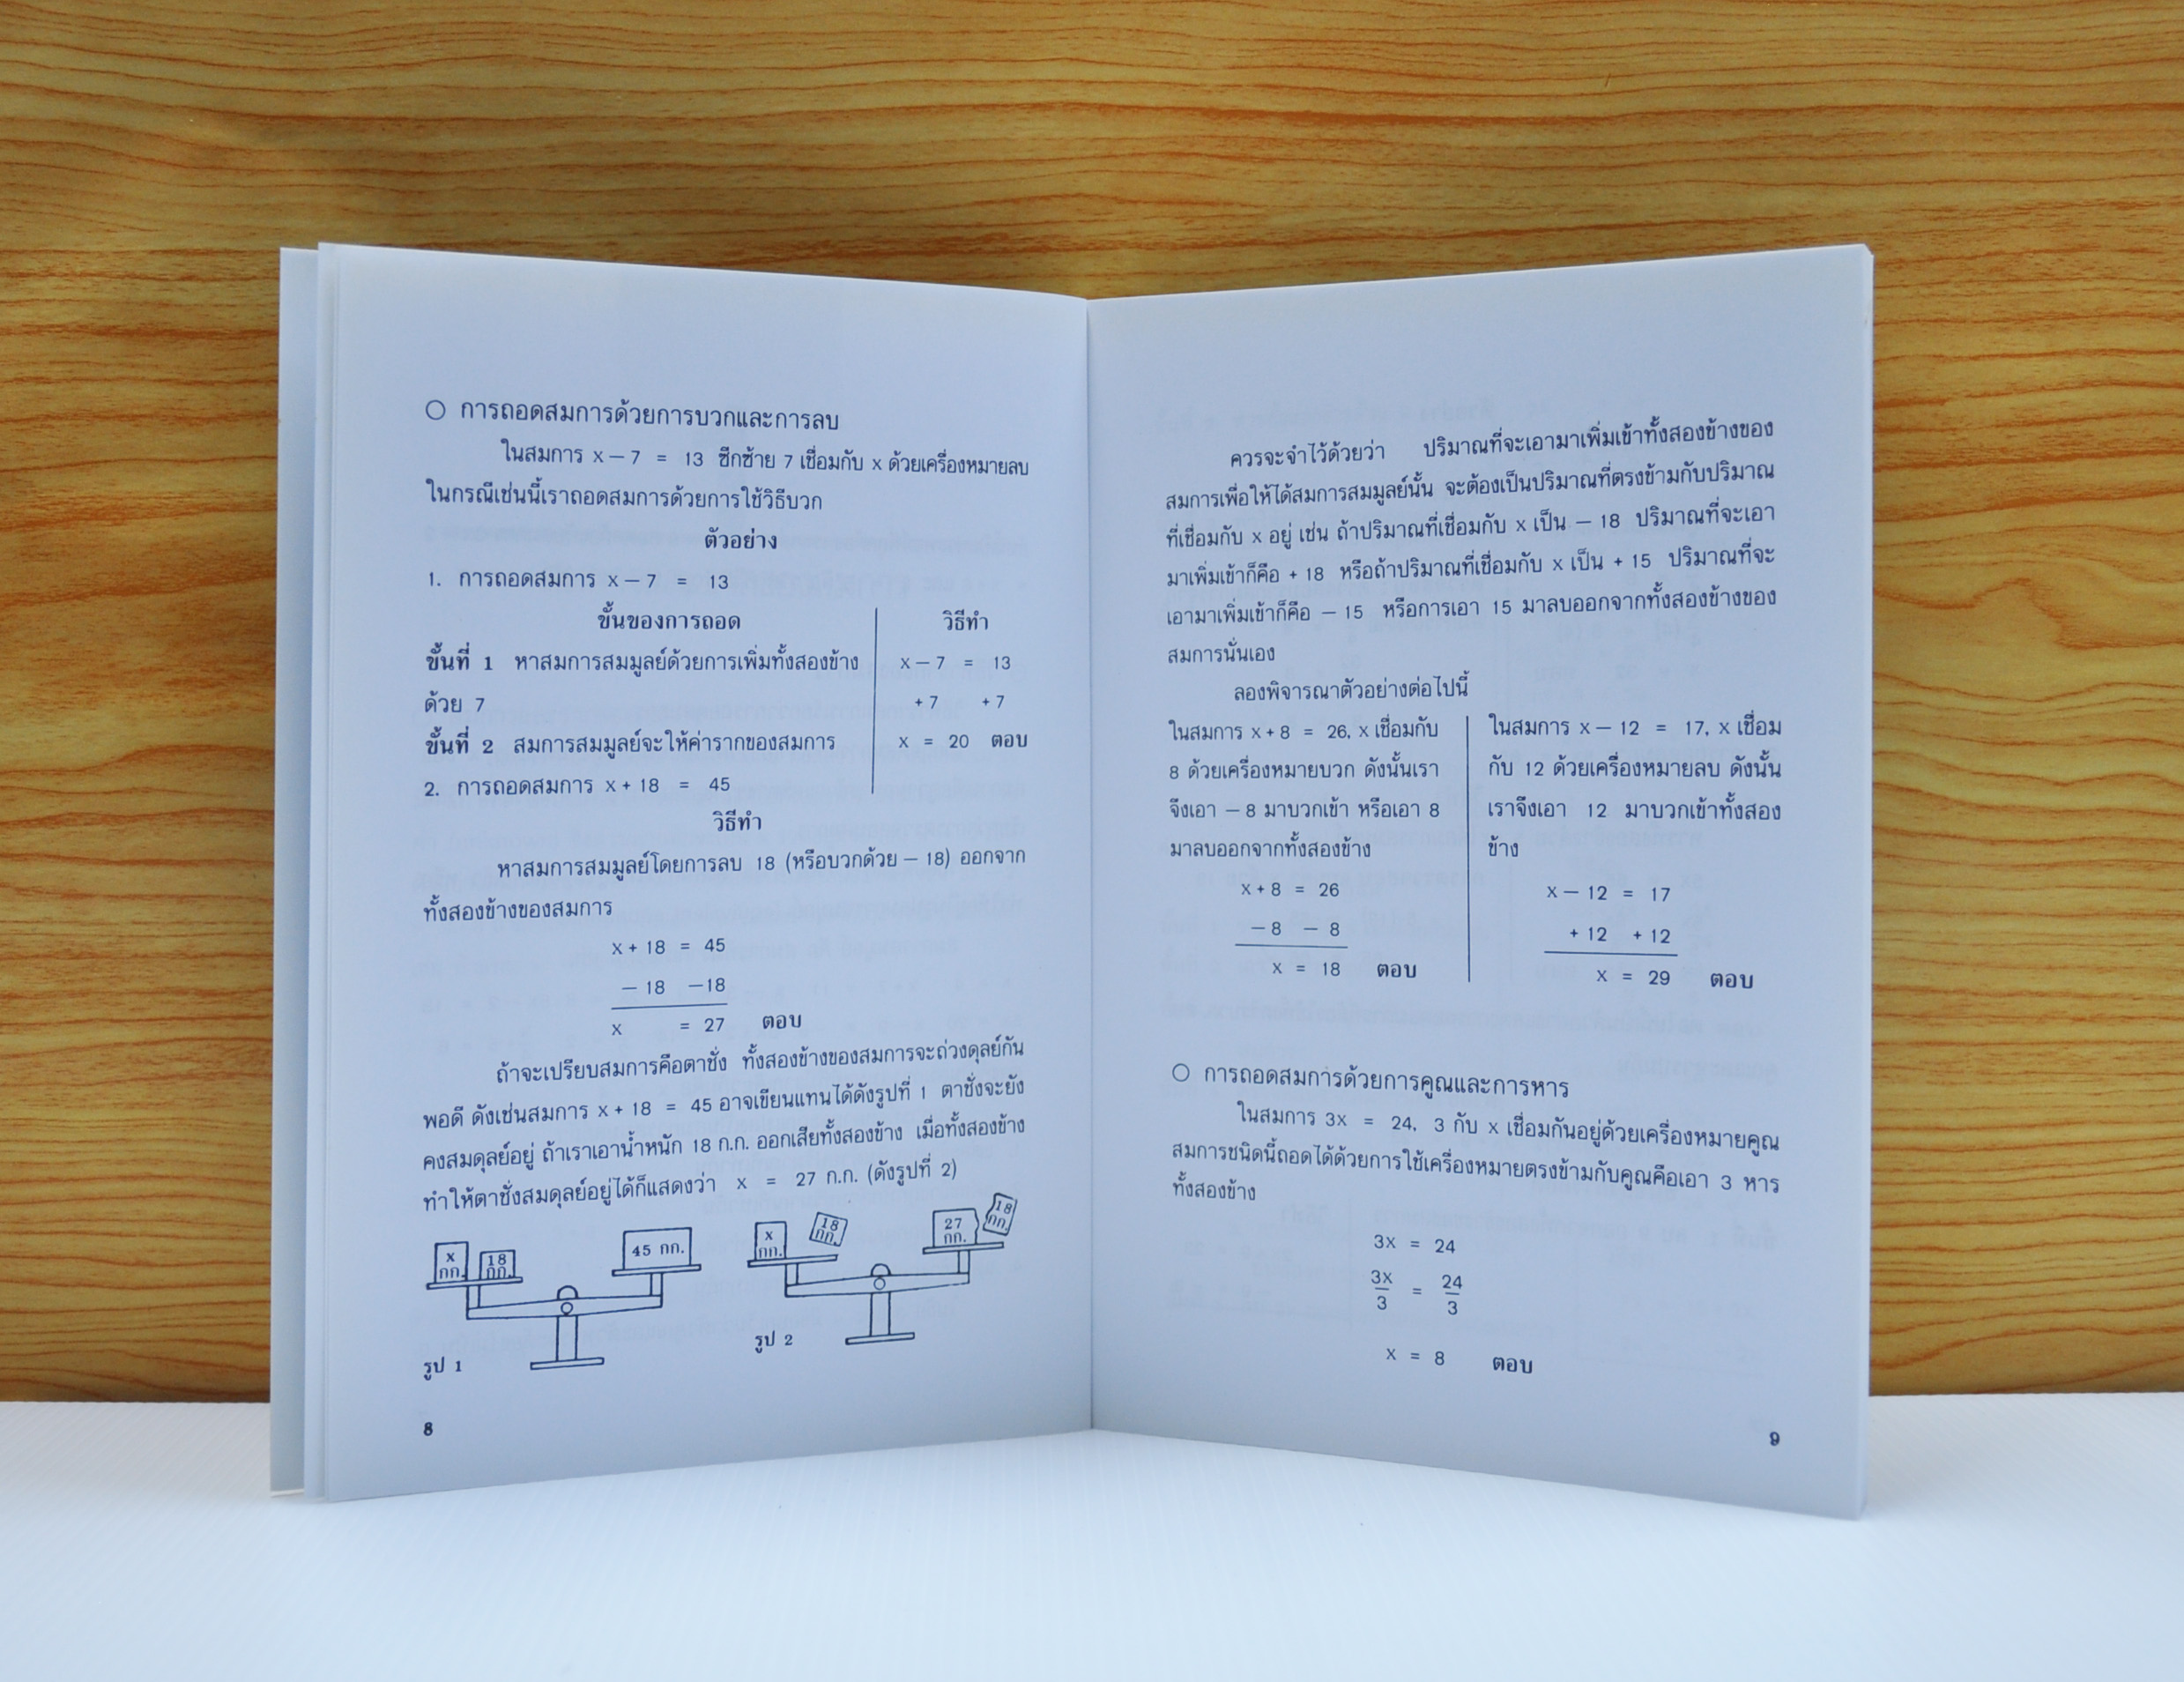 ○ การถอดสมการด้วยการบวกและการลบ
ในสมการ x – 7 = 13 ซีกซ้าย 7 เชื่อมกับ x ด้วยเครื่องหมายลบ
ในกรณีเช่นนี้เราถอดสมการด้วยการใช้วิธีบวก
ตัวอย่าง
1. การถอดสมการ x – 7 = 13
ขั้นของการถอด
ขั้นที่ 1 หาสมการสมมูลย์ด้วยการเพิ่มทั้งสองข้าง
ด้วย 7
ขั้นที่ 2 สมการสมมูลย์จะให้ค่ารากของสมการ
วิธีทำ
x – 7 = 13
+ 7 + 7
x = 20 ตอบ
2. การถอดสมการ x + 18 = 45
วิธีทำ
หาสมการสมมูลย์โดยการลบ 18 (หรือบวกด้วย – 18) ออกจาก
ทั้งสองข้างของสมการ
x + 18 = 45
– 18 –18
x = 27 ตอบ
ถ้าจะเปรียบสมการคือตาชั่ง ทั้งสองข้างของสมการจะถ่วงดุลย์กัน
พอดี ดังเช่นสมการ x + 18 = 45 อาจเขียนแทนได้ดังรูปที่ 1 ตาชั่งจะยัง
คงสมดุลย์อยู่ ถ้าเราเอาน้ำหนัก 18 ก.ก. ออกเสียทั้งสองข้าง เมื่อทั้งสองข้าง
ทำให้ตาชั่งสมดุลย์อยู่ได้ก็แสดงว่า x = 27 ก.ก. (ดังรูปที่ 2)
x
กก.
18
กก.
45 กก.
รูป 1
x
กก.
18
กก.
27
กก.
18
กก.
รูป 2
8
ควรจะจำไว้ด้วยว่า ปริมาณที่จะเอามาเพิ่มเข้าทั้งสองข้างของ
สมการเพื่อให้ได้สมการสมมูลย์นั้น จะต้องเป็นปริมาณที่ตรงข้ามกับปริมาณ
ที่เชื่อมกับ x อยู่ เช่น ถ้าปริมาณที่เชื่อมกับ x เป็น – 18 ปริมาณที่จะเอา
มาเพิ่มเข้าก็คือ + 18 หรือถ้าปริมาณที่เชื่อมกับ x เป็น + 15 ปริมาณที่จะ
เอามาเพิ่มเข้าก็คือ – 15 หรือการเอา 15 มาลบออกจากทั้งสองข้างของ
สมการนั่นเอง
ลองพิจารณาตัวอย่างต่อไปนี้
ในสมการ x + 8 = 26, x เชื่อมกับ
8 ด้วยเครื่องหมายบวก ดังนั้นเรา
จึงเอา – 8 มาบวกเข้า หรือเอา 8
มาลบออกจากทั้งสองข้าง
x + 8 = 26
– 8 – 8
x = 18 ตอบ
ในสมการ x – 12 = 17, x เชื่อม
กับ 12 ด้วยเครื่องหมายลบ ดังนั้น
เราจึงเอา 12 มาบวกเข้าทั้งสอง
ข้าง
x – 12 = 17
+ 12 + 12
x = 29 ตอบ
○ การถอดสมการด้วยการคูณและการหาร
ในสมการ 3x = 24, 3 กับ x เชื่อมกันอยู่ด้วยเครื่องหมายคูณ
สมการชนิดนี้ถอดได้ด้วยการใช้เครื่องหมายตรงข้ามกับคูณคือเอา 3 หาร
ทั้งสองข้าง
3x = 24
3x/3 = 24/3
x = 8 ตอบ
9